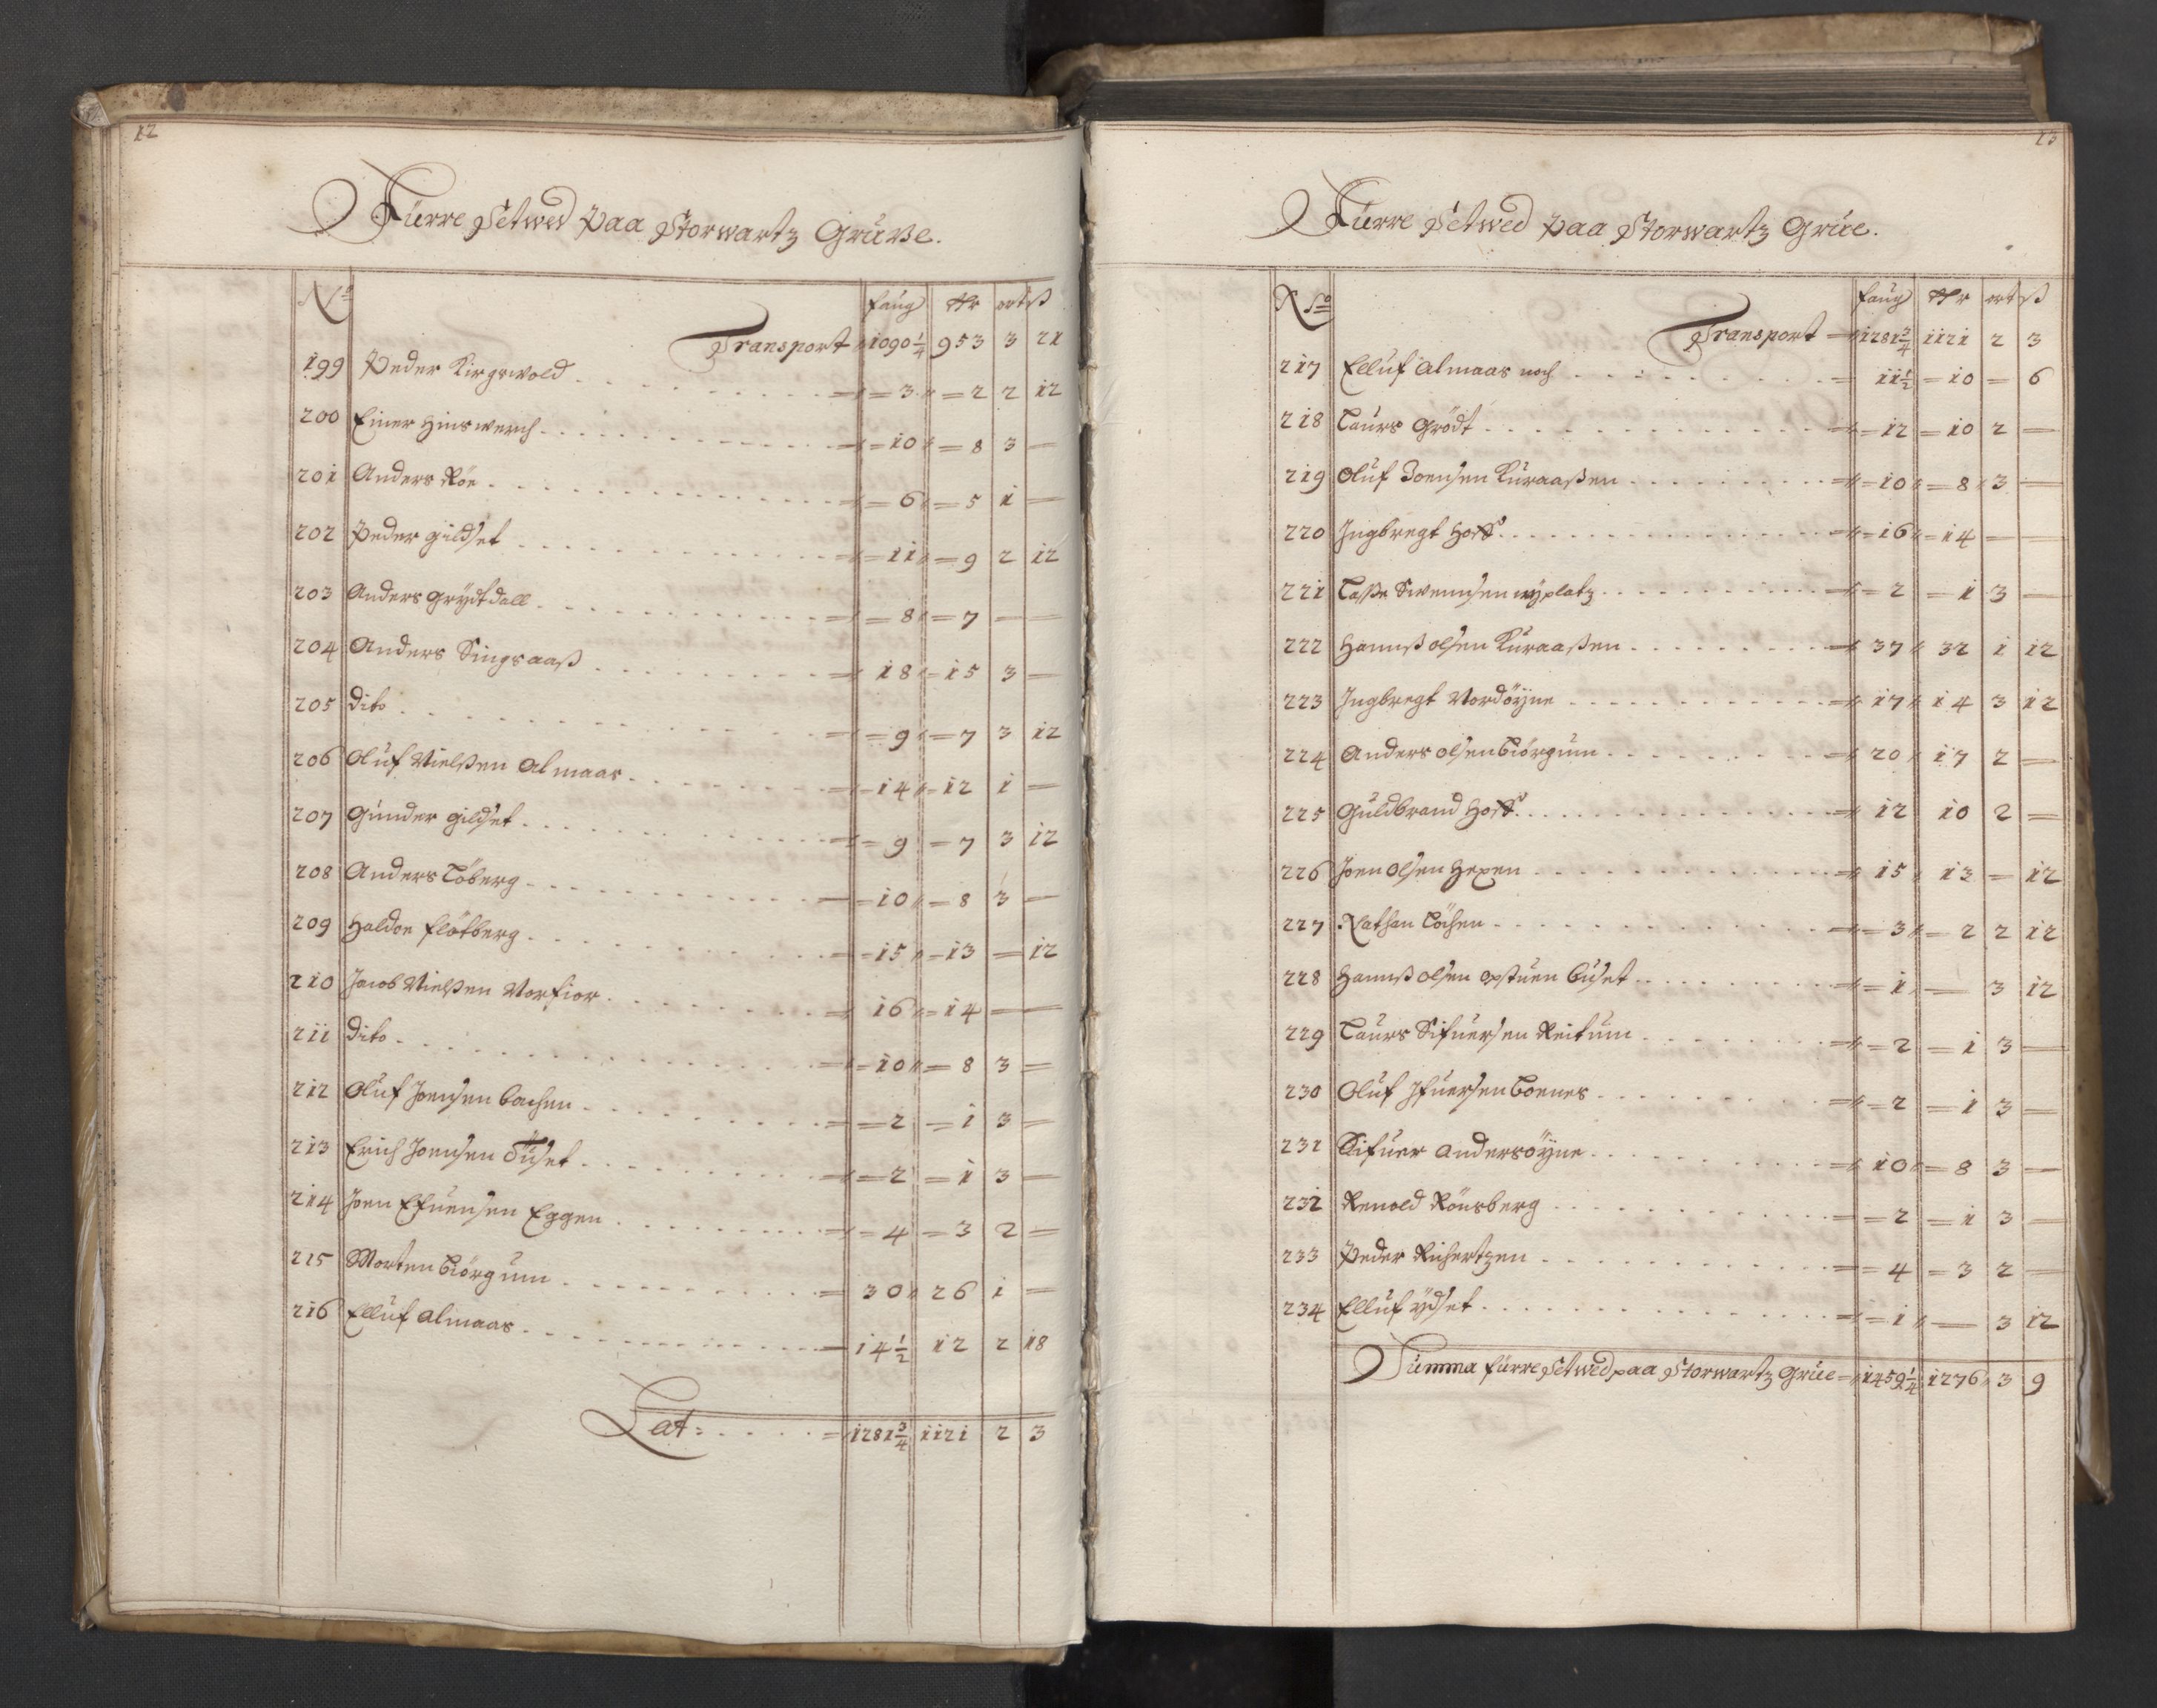 12
Fürre Setwed Paa Storwartz Gruve.
No faug Rr ort ß
Transport 1090 1/4 953 3 21
199 Peder Kirgswold 3 2 2 12
200 Einer Hinswerch 10 8 3 —
201 Anders Röe 6 5 1 —
202 Peder Gildset 11 9 2 12
203 Anders Grydtdall 8 7 — —
204 Anders Singsaaß 18 15 3 —
205 Dito 9 7 3 12
206 Oluf Nielßen Almaas 14 12 1 —
207 Gunder Gildset 9 7 3 12
208 Anders Töberg 10 8 3 —
209 Haldor Flötberg 15 13 — 12
210 Jacob Nielßen Norfior 16 14 — —
211 Dito 10 8 3 —
212 Oluf Joensen Bachen 2 1 3 —
213 Erich Joensen 2 1 3 —
214 Joen Efuensen Eggen 4 3 2 —
215 Morten Biörgum 30 26 1 —
216 Elluf Almaas 14 1/2 12 2 18
Lat: 1281 3/4 1121 2 3
13
Fürre Setwed paa Storwartz Grue.
No faug Rr ort ß
Transport 1281 3/4 1121 2 3
217 Elluf Almaas noch 11 1/2 10 — 6
218 Laurs Grödt 12 10 2 —
219 Oluf Joensen Kuraaßen 10 8 3 —
220 Ingbregt 16 14 — —
221 Laße Swensen nyplatz 2 1 3 —
222 Hannß Olsen Kuraaßen 37 32 1 12
223 Ingbregt Nordöyne 17 14 3 12
224 Anders Olsen Biörgum 20 17 2 —
225 Guldbrand 12 10 2 —
226 Joen Olsen Hexen 15 13 — 12
227 Nathan 3 2 2 12
228 Hannß Olsen Opstuen Buset 1 — 3 12
229 Laurs Sifuersen Reitum 2 1 3 —
230 Oluf Ifuersen Boenes 2 1 3 —
231 Sifuer Andersöyne 10 8 3 —
232 Renold Rönsberg 2 1 3 —
233 Peder Richertzen 4 3 2 —
234 Elluf Ydset 1 — 3 12
Summa fürre Setwed paa Storwartz Grue 1459 1/4 1276 3 9